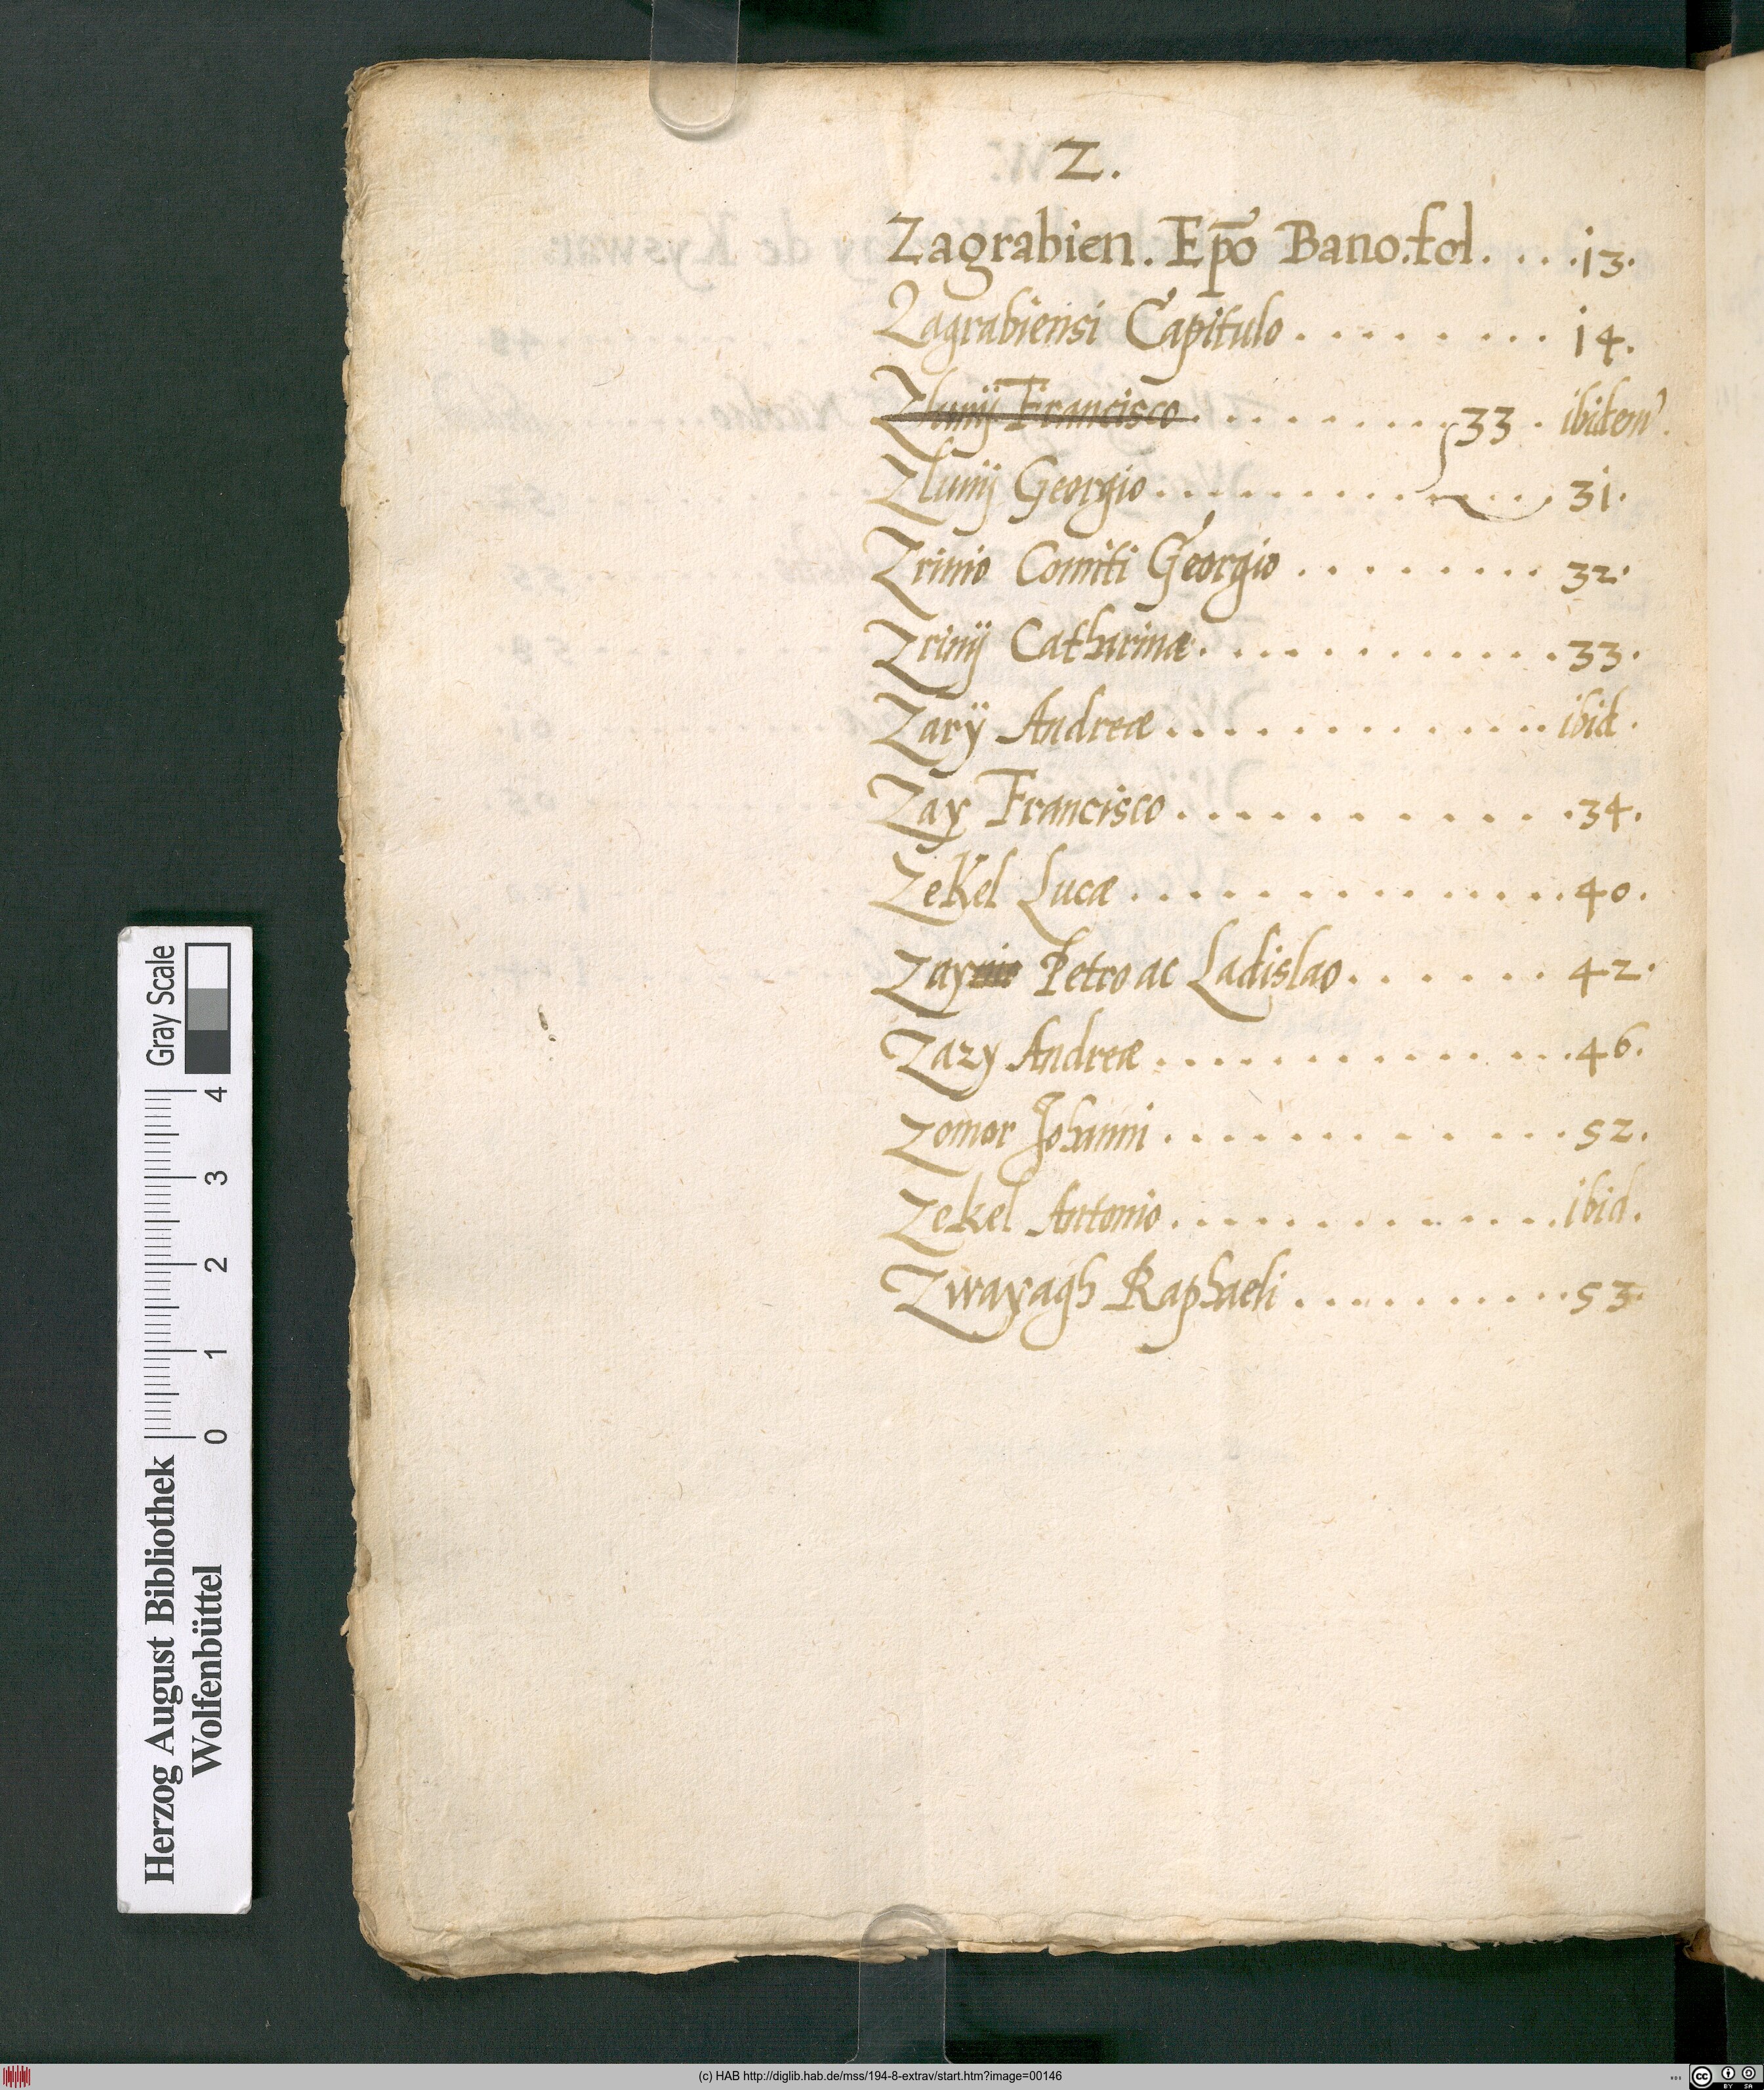 Z.
Zagrabien. Ep̄o Bano. fol. . . . . 13.
Zagrabiensi Capitulo . . . . . . . . . 14.
Zlunij Francisco . . . . . . . . . 33 . ibidem.
Zlunij Georgio . . . . . . . . . . . . . 31.
Zrinio Comiti Georgio . . . . . . . . 32.
Zrinij Catharinæ . . . . . . . . . . . . 33.
Zarÿ Andreæ . . . . . . . . . . . . . ibid.
Zay Francisco . . . . . . . . . . . . 34.
Zekel Lucæ . . . . . . . . . . . . . . 40.
Zay Petro ac Ladislao . . . . . . . 42.
Zazy Andreæ . . . . . . . . . . . . . 46.
Zomor Johanni . . . . . . . . . . . . 52.
Zekel Antonio . . . . . . . . . . . . . ibid.
Zwayagh Raphaeli . . . . . . . . . . 53.
Herzog August Bibliothek
Wolfenbüttel
0 1 2 3 4
Gray Scale
(c) HAB http://diglib.hab.de/mss/194-8-extrav/start.htm?image=00146
cc BY SA